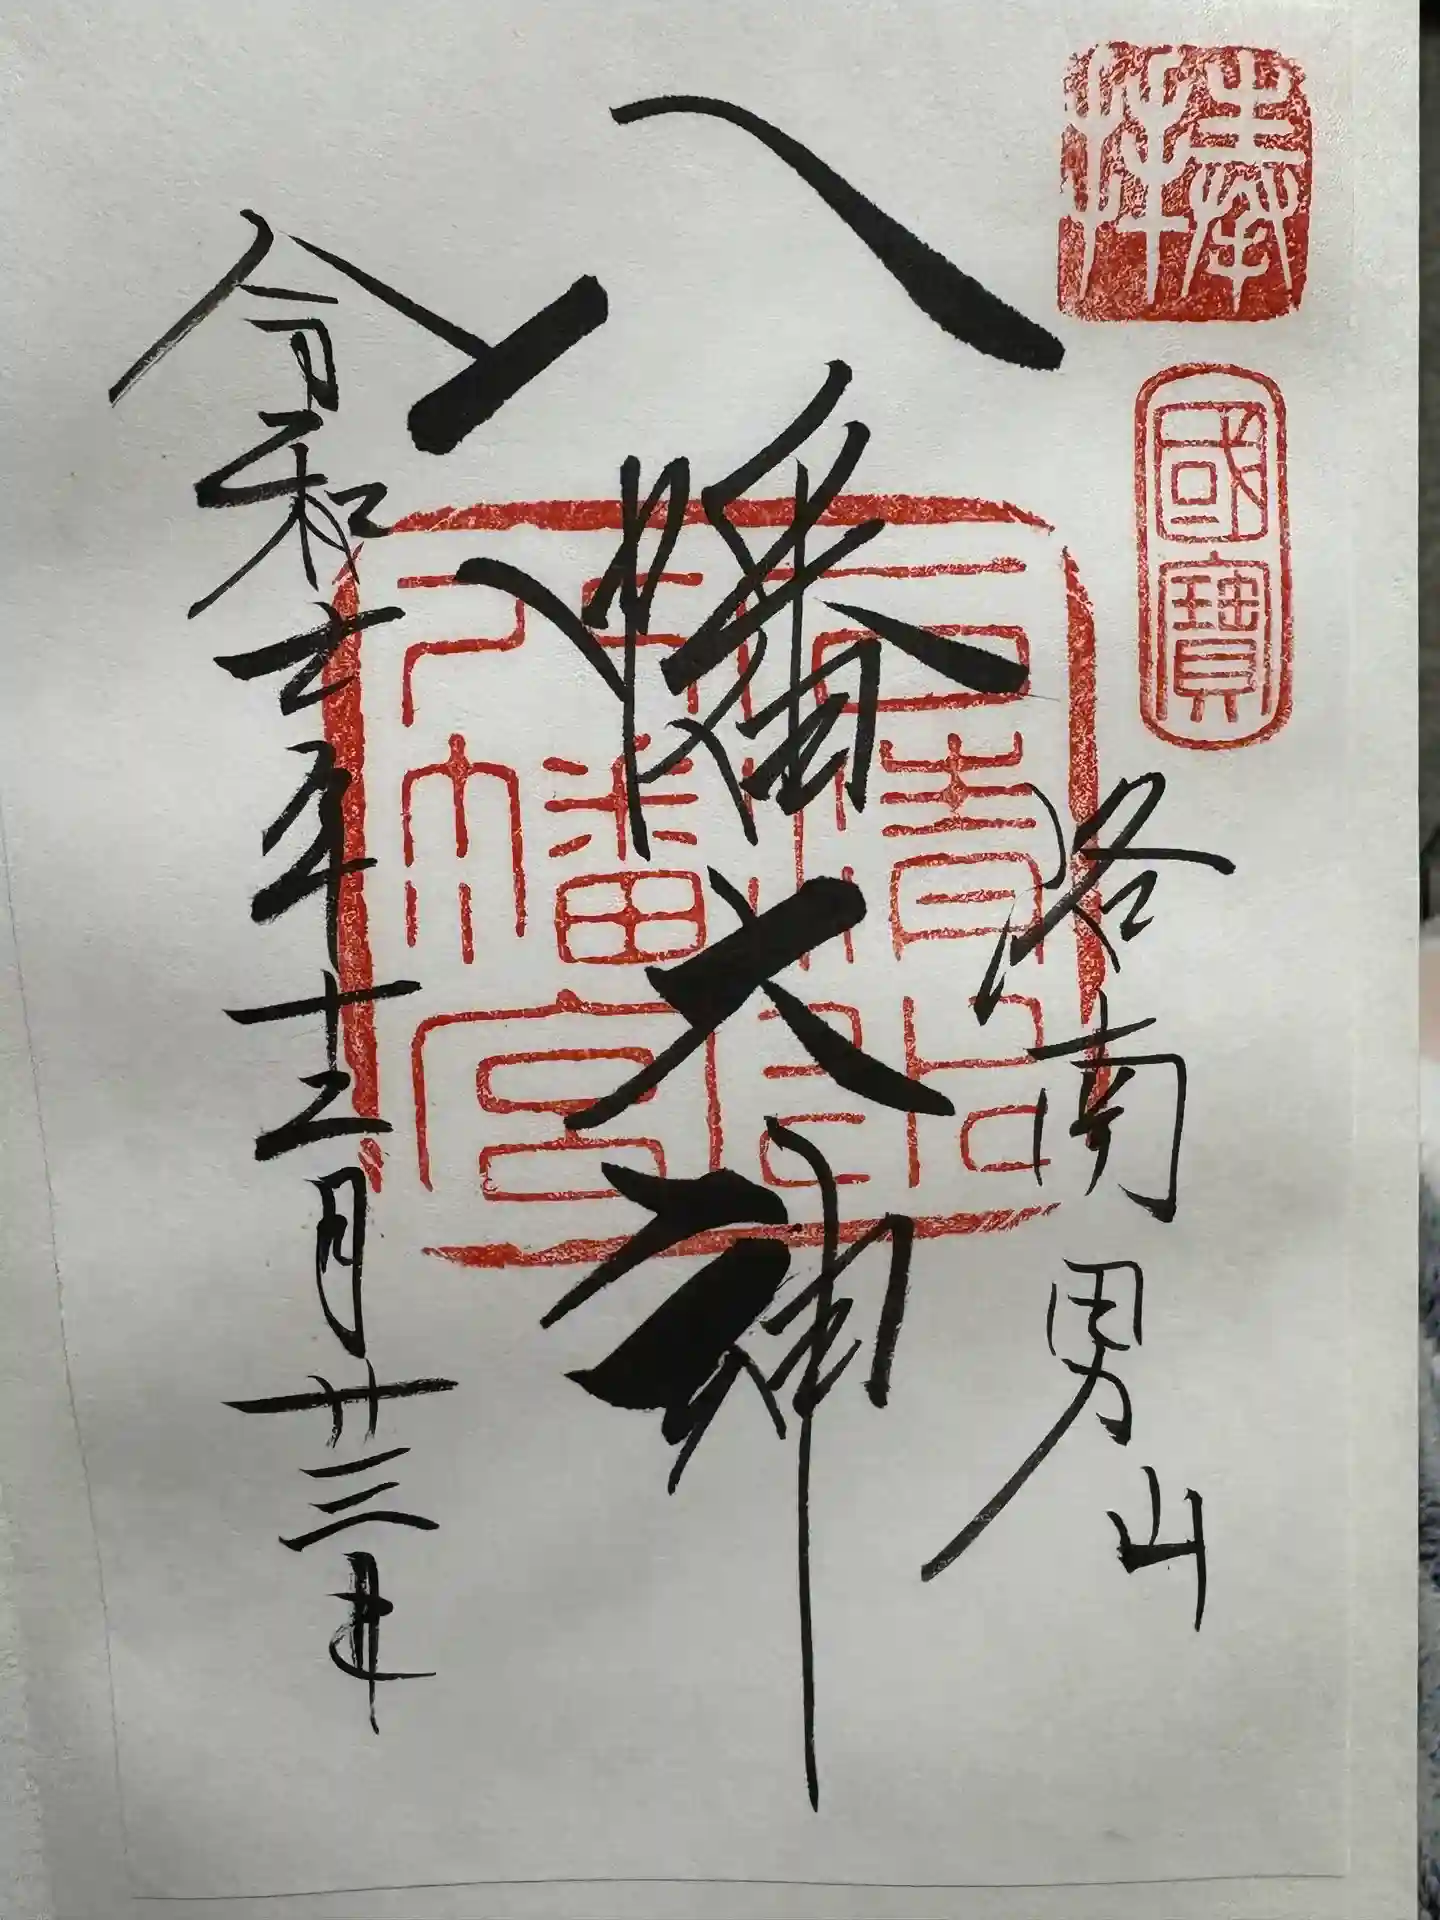 奉拝
國寶
洛南男山
八幡大神
石清水
八幡宮
令和元年十二月廿三日